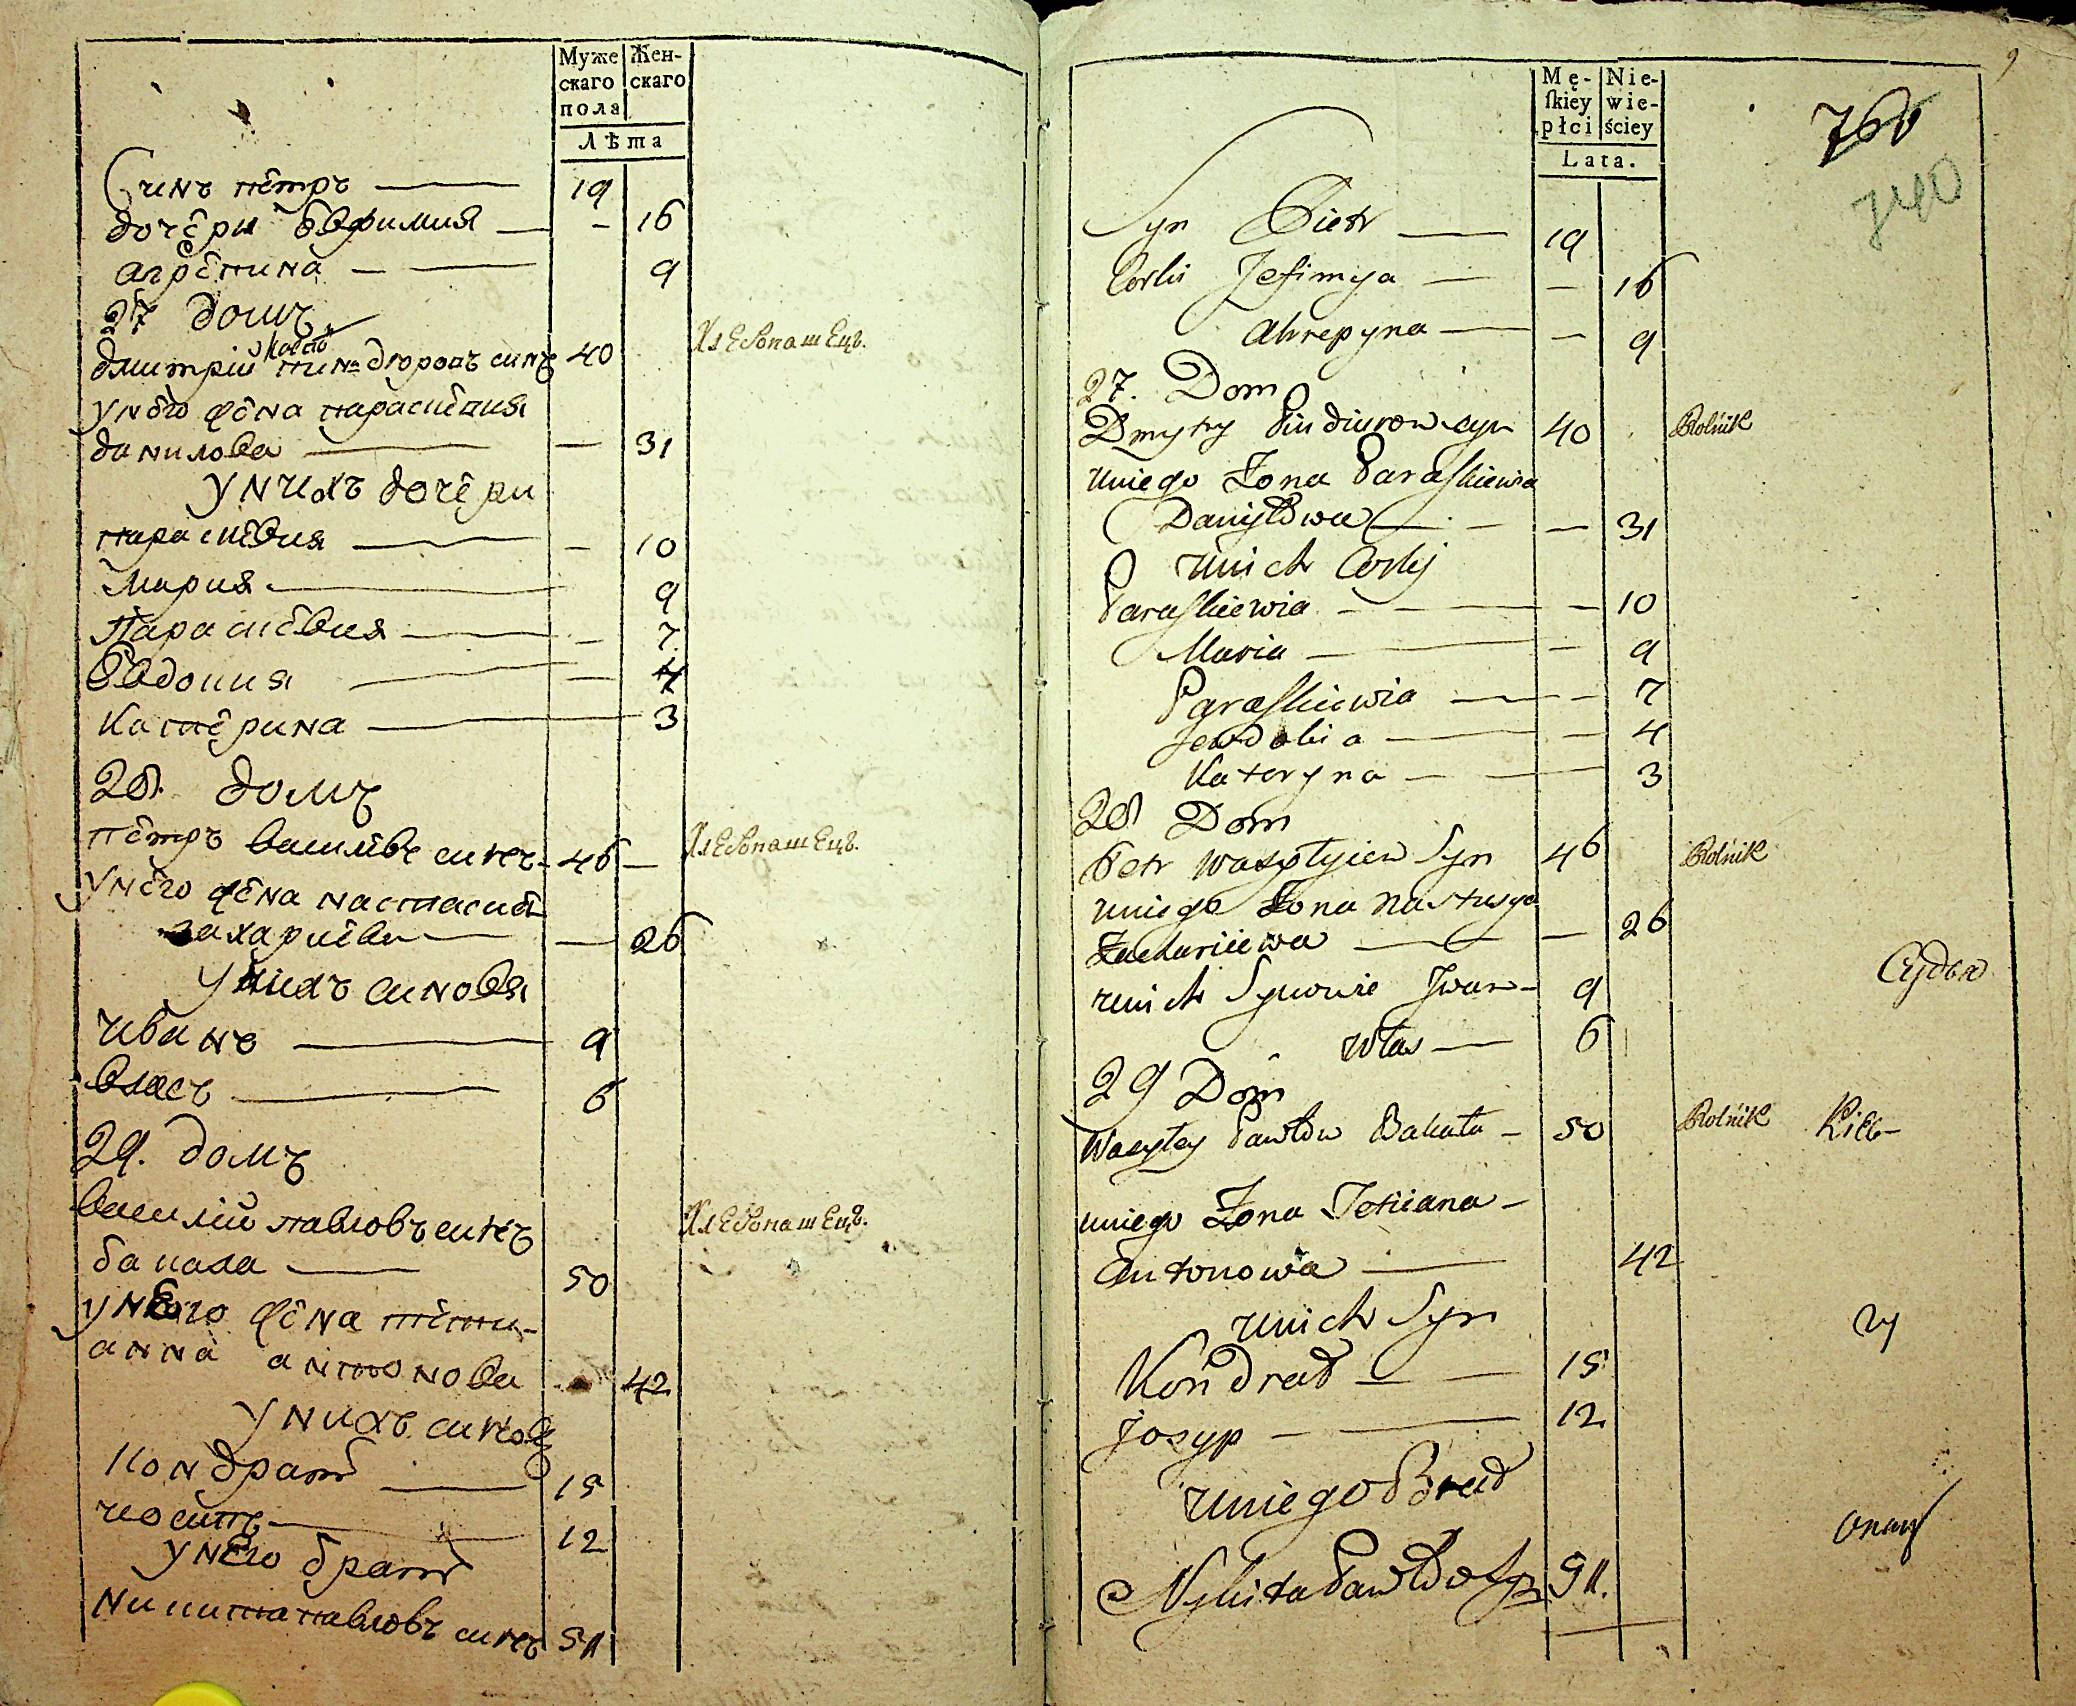 Муже Жен-
скаго скаго
пола
Лѣта
Синъ пётръ 19
дочери Евфимия - 16
агрепина 9
27 домъ
дмитрій пиндюровъ синъ 40 Хлебопашецъ.
унего жена параскевия
данилова - 31
унихъ дочери
параскевия - 10
Мария 9
Параскевия - 7
Евдокия - 4
Катерина 3
28. домъ
пётръ васильевъ синъ 46 Хлебопашецъ.
унего жена настасия
захариева - 26
унихъ синовя
иванъ 9
власъ 6
29. домъ
василій павловъ синъ Хлебопашецъ.
бакала 50
унего жена тети-
анна антонова 42
унихъ синове
кондрат 15
иосипъ 12
унего брат
никита павловъ синъ 51
9
Mę- Nie-
ſkiey wie-
płci ściey
Lata.
766
740
Syn Pietr 19
Corki Jefimya - 16
Ahrepyna - 9
27. Dom
Dmytry Pindiurow syn 40 Rolnik
uniego Żona Paraskiewia
Danyłowa - 31
unich Corki
Paraskiewia - 10
Maria - 9
Paraskiewia - 7
Jewdokia - 4
Kateryna 3
28 Dom
Petr Wasylyiew Syn 46 Rolnik
uniego Żona Nastusya
Zachariiewa - 26
unich Synowie Jwan 9
Włas 6
29 Dom
Wasyley Pawłow Bakała 50 Rolnik
uniego Żona Tetiiana
Antonowa 42
unich Syn
Kondrad 15
Josyp 12
uniego Brad
Nykita Pawłow Syn 51.